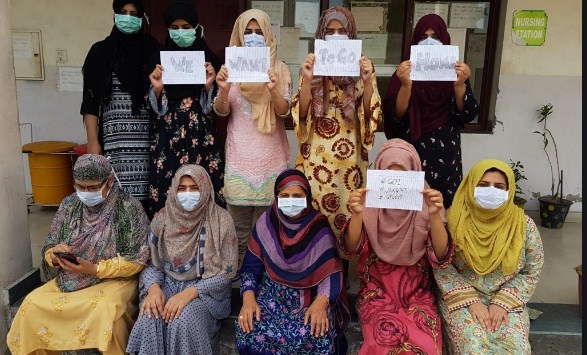 NURSING
STATION
WE
WANT
To Go
Home
# GOI